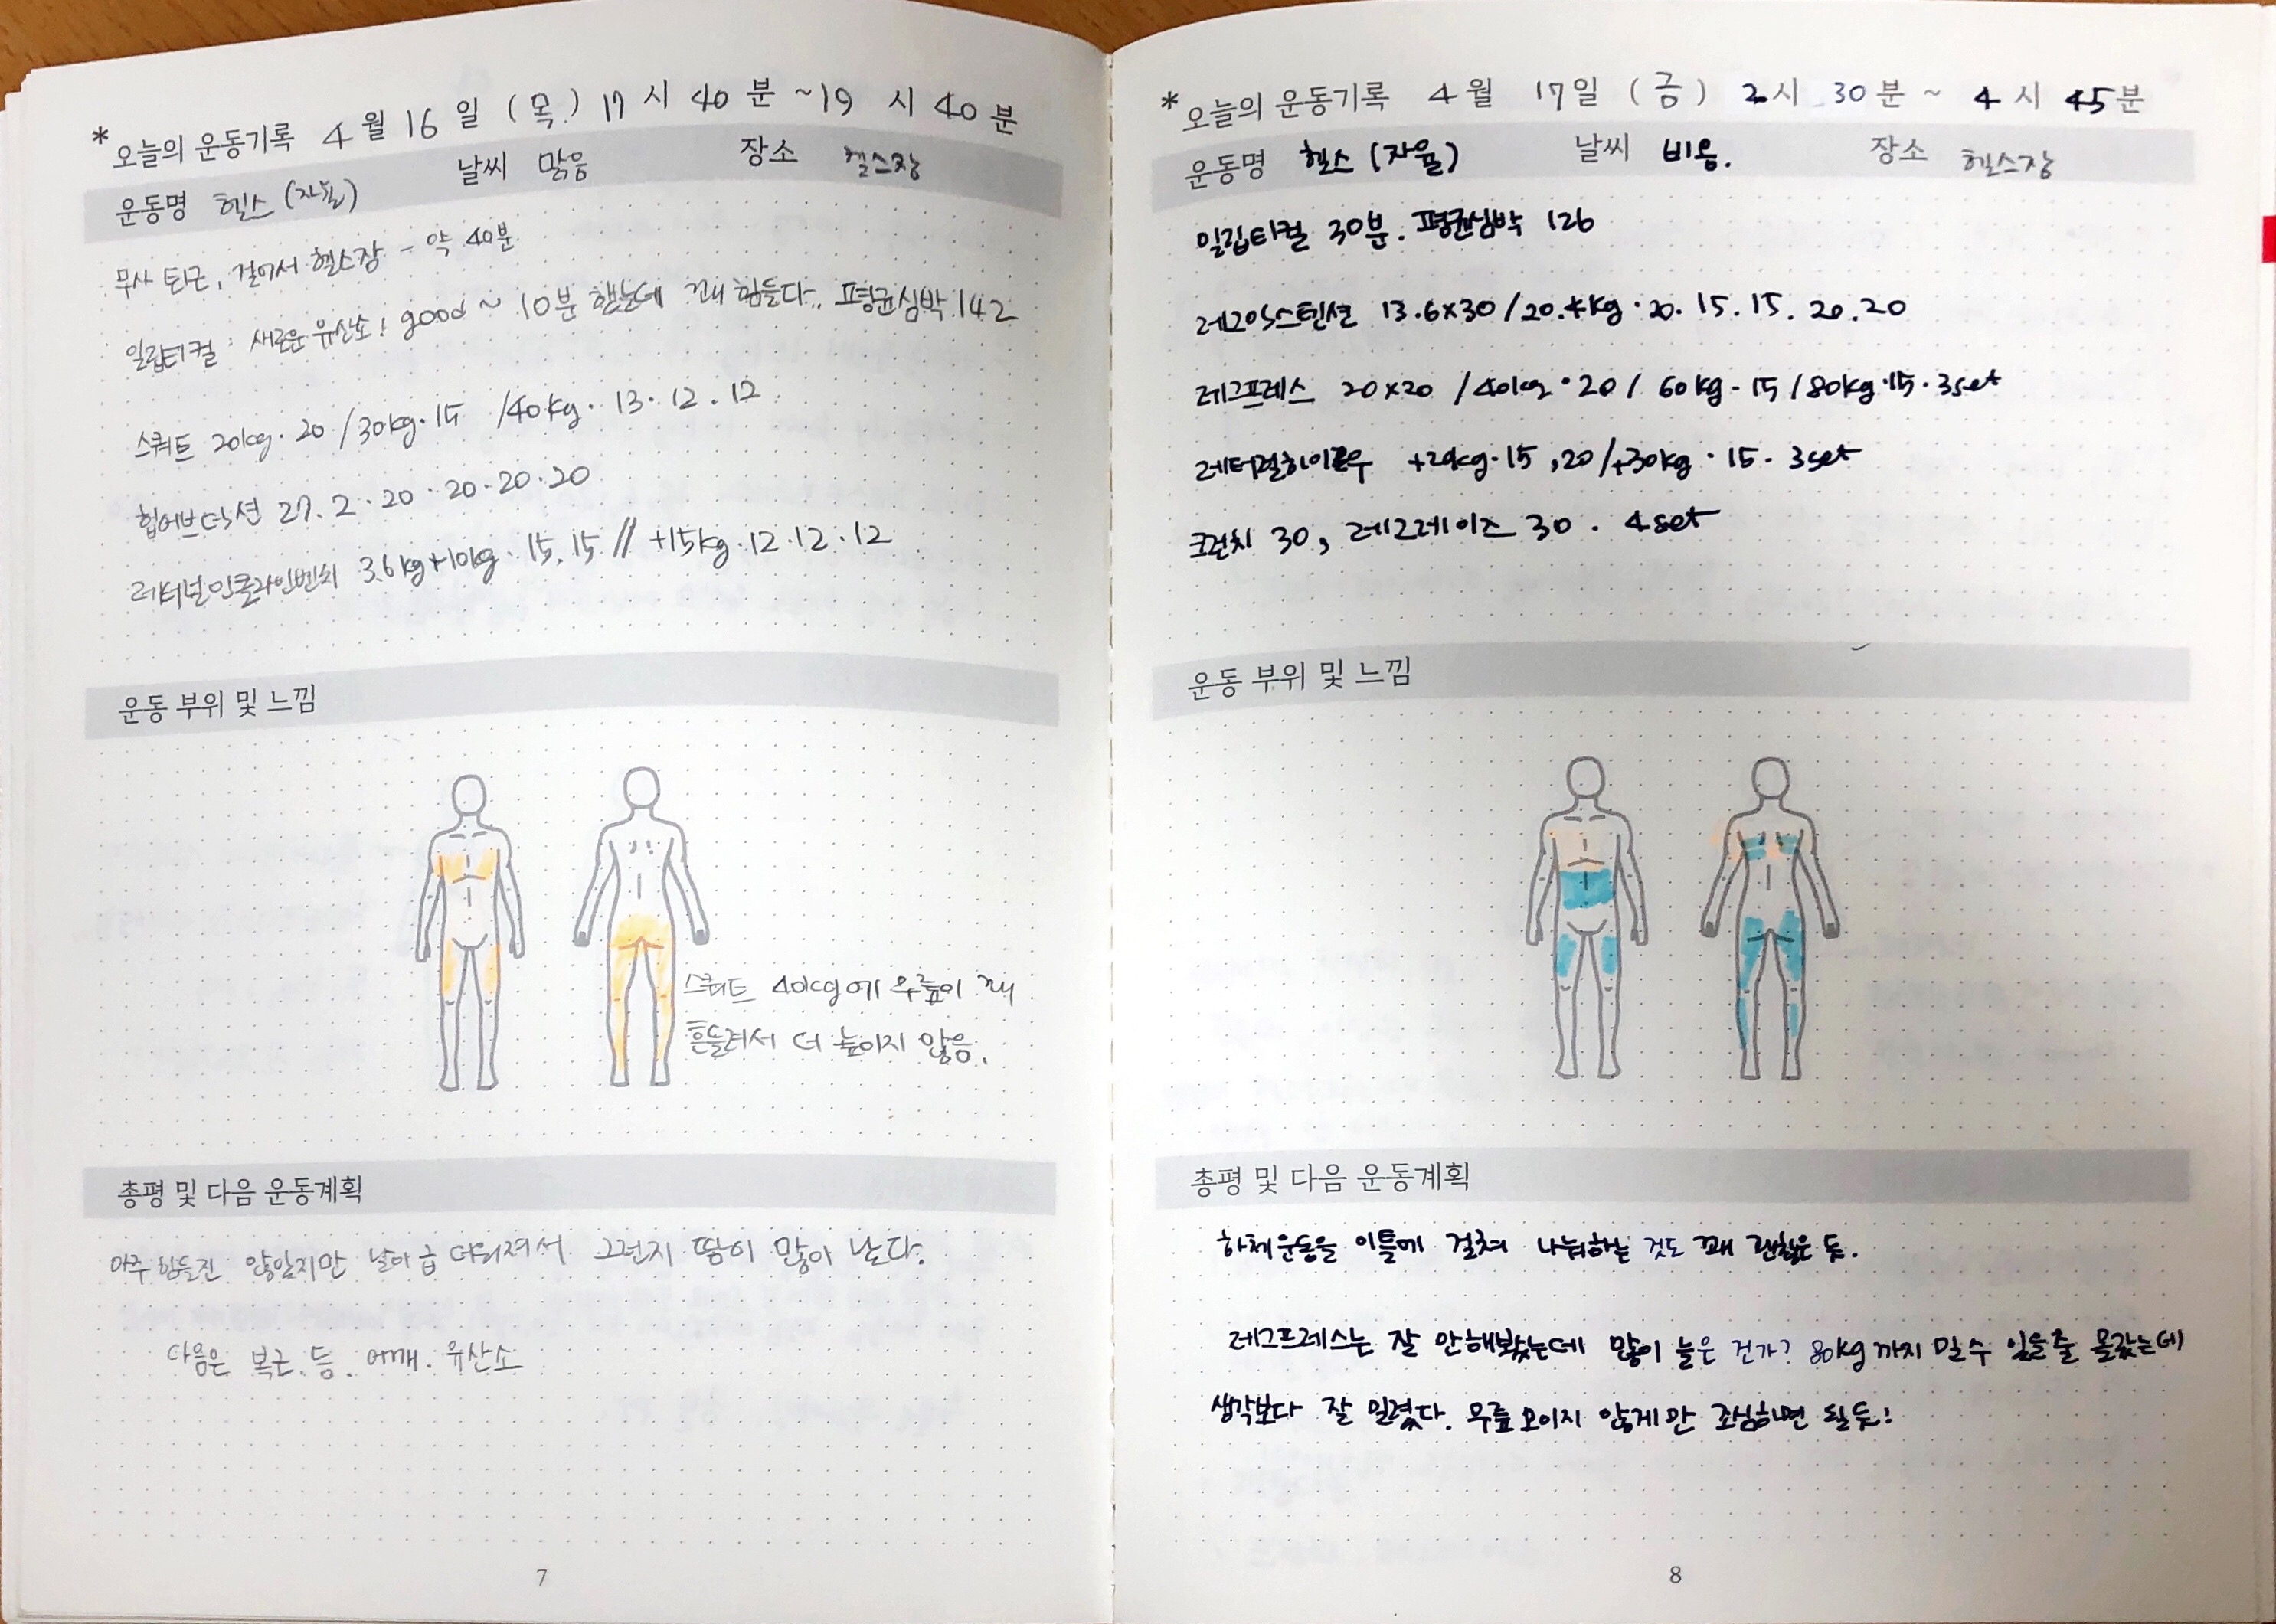 *오늘의 운동기록 4월 16일 (목) 17시 40분 ~19시 40분
운동명 헬스 (자율) 날씨 맑음 장소 헬스장
무사 퇴근, 걸어서 헬스장 - 약 40분
일립티컬 : 새로운 유산소! good ~ 10분 했는데 꽤 힘들다.. 평균심박 142
스쿼트 20kg · 20 / 30kg · 15 / 40kg · 13 · 12 . 12
힙어브덕션 27.2 · 20 · 20 · 20 · 20
레터럴인클라인벤치 3.6kg+10kg · 15. 15 // +15kg · 12 · 12 · 12
운동 부위 및 느낌
스쿼트 40kg에 무릎이 꽤
흔들려서 더 높이지 않음.
총평 및 다음 운동계획
아주 힘들진 않았지만 날이 급 더워져서 그런지 땀이 많이 난다.
다음은 복근. 등. 어깨. 유산소
7
*오늘의 운동기록 4월 17일 (금) 2시 30분 ~ 4시 45분
운동명 헬스 (자율) 날씨 비옴. 장소 헬스장
일립티컬 30분. 평균심박 126
레그익스텐션 13.6x30 / 20.4kg · 20. 15. 15. 20. 20
레그프레스 20x20 / 40kg · 20 / 60kg - 15 / 80kg · 15 · 3set
레터럴하이로우 +20kg · 15, 20 / +30kg · 15 · 3set
크런치 30, 레그레이즈 30 . 4set
운동 부위 및 느낌
총평 및 다음 운동계획
하체운동을 이틀에 걸쳐 나눠하는 것도 꽤 괜찮은 듯.
레그프레스는 잘 안해봤는데 많이 늘은 건가? 80kg까지 밀 수 있을줄 몰랐는데
생각보다 잘 밀렸다. 무릎 모이지 않게만 조심하면 될듯!
8